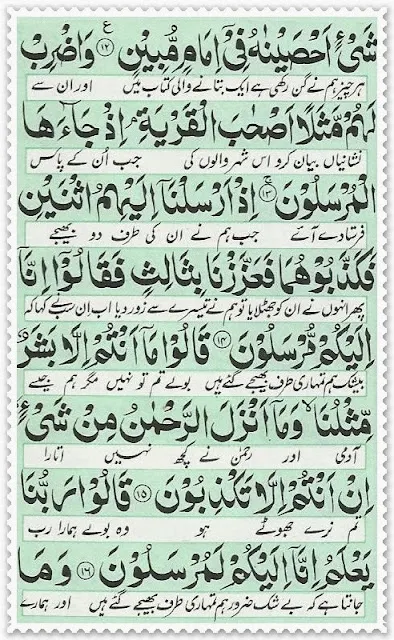 شَیْءٍ اَحْصَیْنٰهُ فِیْۤ اِمَامٍ مُّبِیْنٍ ﴿۱۲﴾ ع وَاضْرِبْ
ہر چیز ہم نے گن رکھی ہے ایک بتانے والی کتاب میں اور ان سے
لَهُمْ مَّثَلًا اَصْحٰبَ الْقَرْیَةِ ۘ اِذْ جَآءَهَا
نشانیاں بیان کرو اس شہر والوں کی جب اُن کے پاس
الْمُرْسَلُوْنَ ﴿۱۳﴾ ج اِذْ اَرْسَلْنَاۤ اِلَیْهِمُ اثْنَیْنِ
فرستادے آئے جب ہم نے ان کی طرف دو بھیجے
فَكَذَّبُوْهُمَا فَعَزَّزْنَا بِثَالِثٍ فَقَالُوْۤا اِنَّاۤ
پھر انہوں نے ان کو جھٹلایا تو ہم نے تیسرے سے زور دیا اب ان سب نے کہا کہ
اِلَیْكُمْ مُّرْسَلُوْنَ ﴿۱۴﴾ قَالُوْا مَاۤ اَنْتُمْ اِلَّا بَشَرٌ
بیشک ہم تمہاری طرف بھیجے گئے ہیں بولے تم تو نہیں مگر ہم جیسے
مِّثْلُنَا ۙ وَمَاۤ اَنْزَلَ الرَّحْمٰنُ مِنْ شَیْءٍ ۙ
آدمی اور رحمٰن نے کچھ نہیں اتارا
اِنْ اَنْتُمْ اِلَّا تَكْذِبُوْنَ ﴿۱۵﴾ قَالُوْا رَبُّنَا
تم نرے جھوٹے ہو وہ بولے ہمارا رب
یَعْلَمُ اِنَّاۤ اِلَیْكُمْ لَمُرْسَلُوْنَ ﴿۱۶﴾ وَمَا
جانتا ہے کہ بے شک ضرور ہم تمہاری طرف بھیجے گئے ہیں اور ہمارے